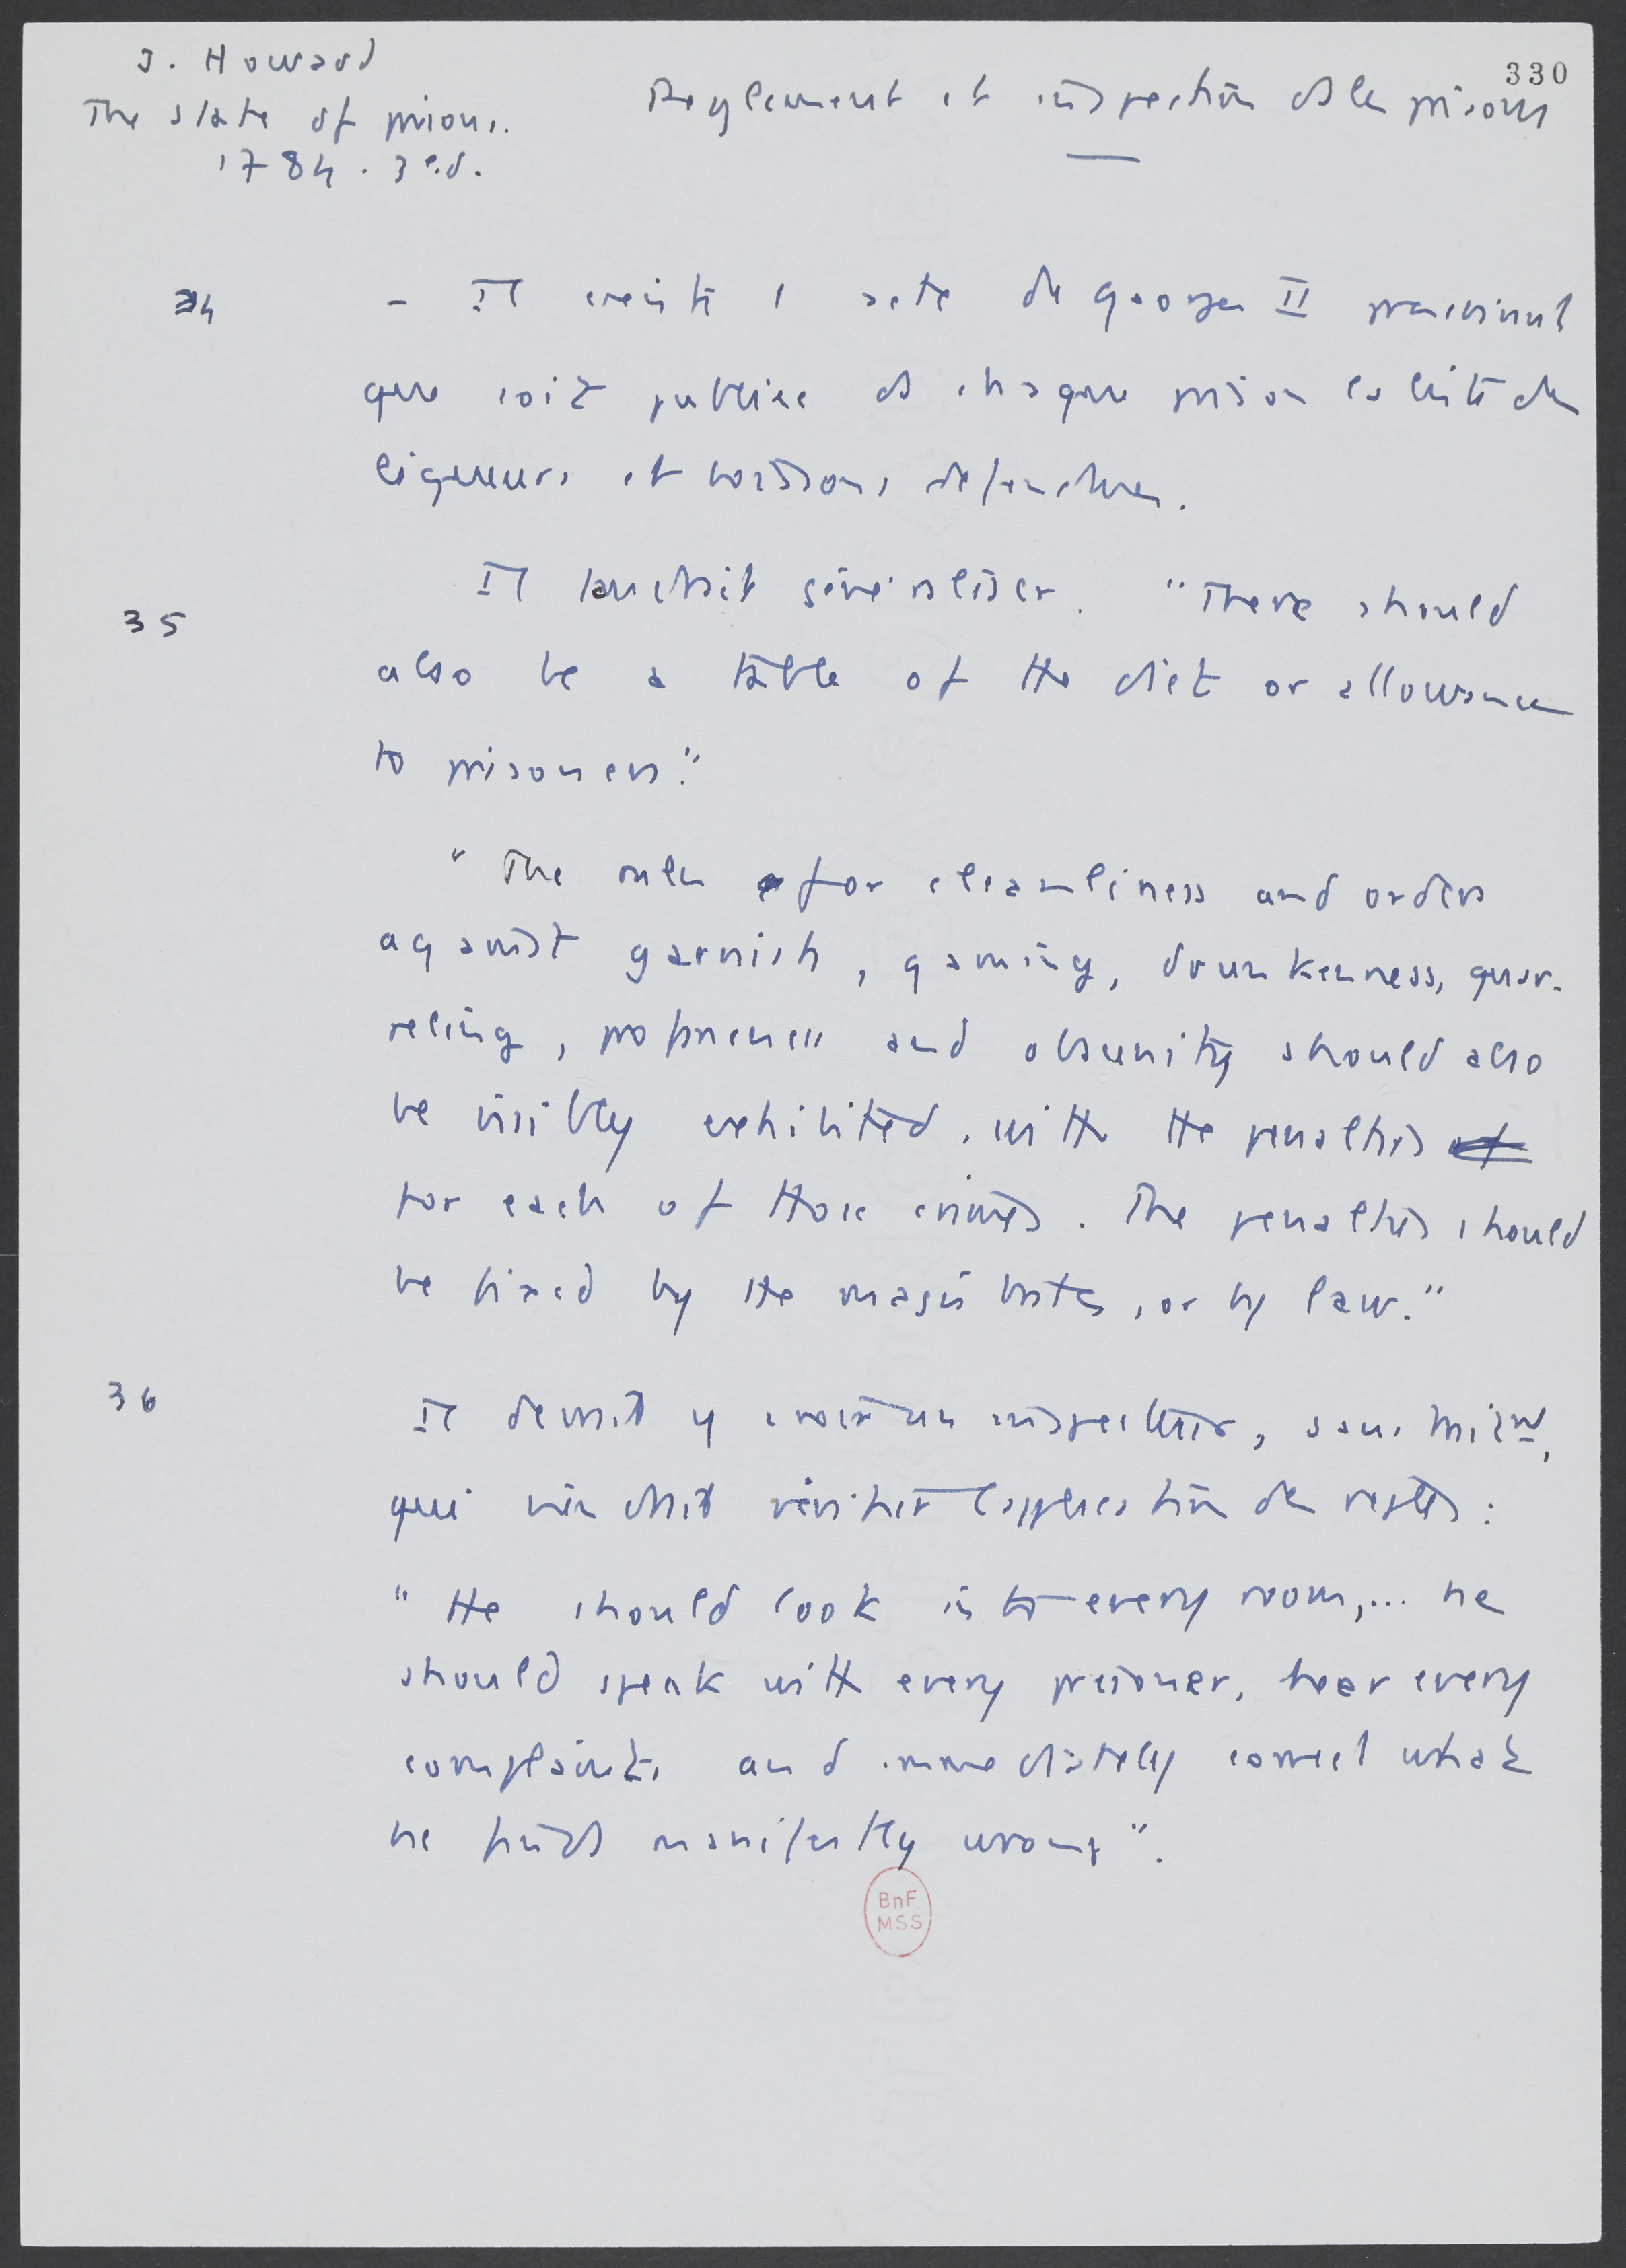 J. Howard
The state of prisons.
1784. 3 ed.
330
Reglement et inspection ds les prisons
34
- Il existe 1 acte de George II prescrivant
que soit publiée ds chaque prison la liste des
liqueurs et boissons défendues.
35
Il faudrait généraliser. "There should
also be a table of the diet or allowance
to prisoners."
"The rules for cleanliness and orders
against garnish, gaming, drunkenness, quar-
reling, profaneness and obscenity should also
be visibly exhibited, with the penalties of
for each of those crimes. The penalties should
be fixed by the magistrates, or by law."
36
Il devrait y avoir un inspecteur, sans
qui viendrait vérifier l'application des règles :
"He should look into every room,... he
should speak with every prisoner, hear every
complaints and immediately correct what
he finds manifestly wrong".
BnF
MSS